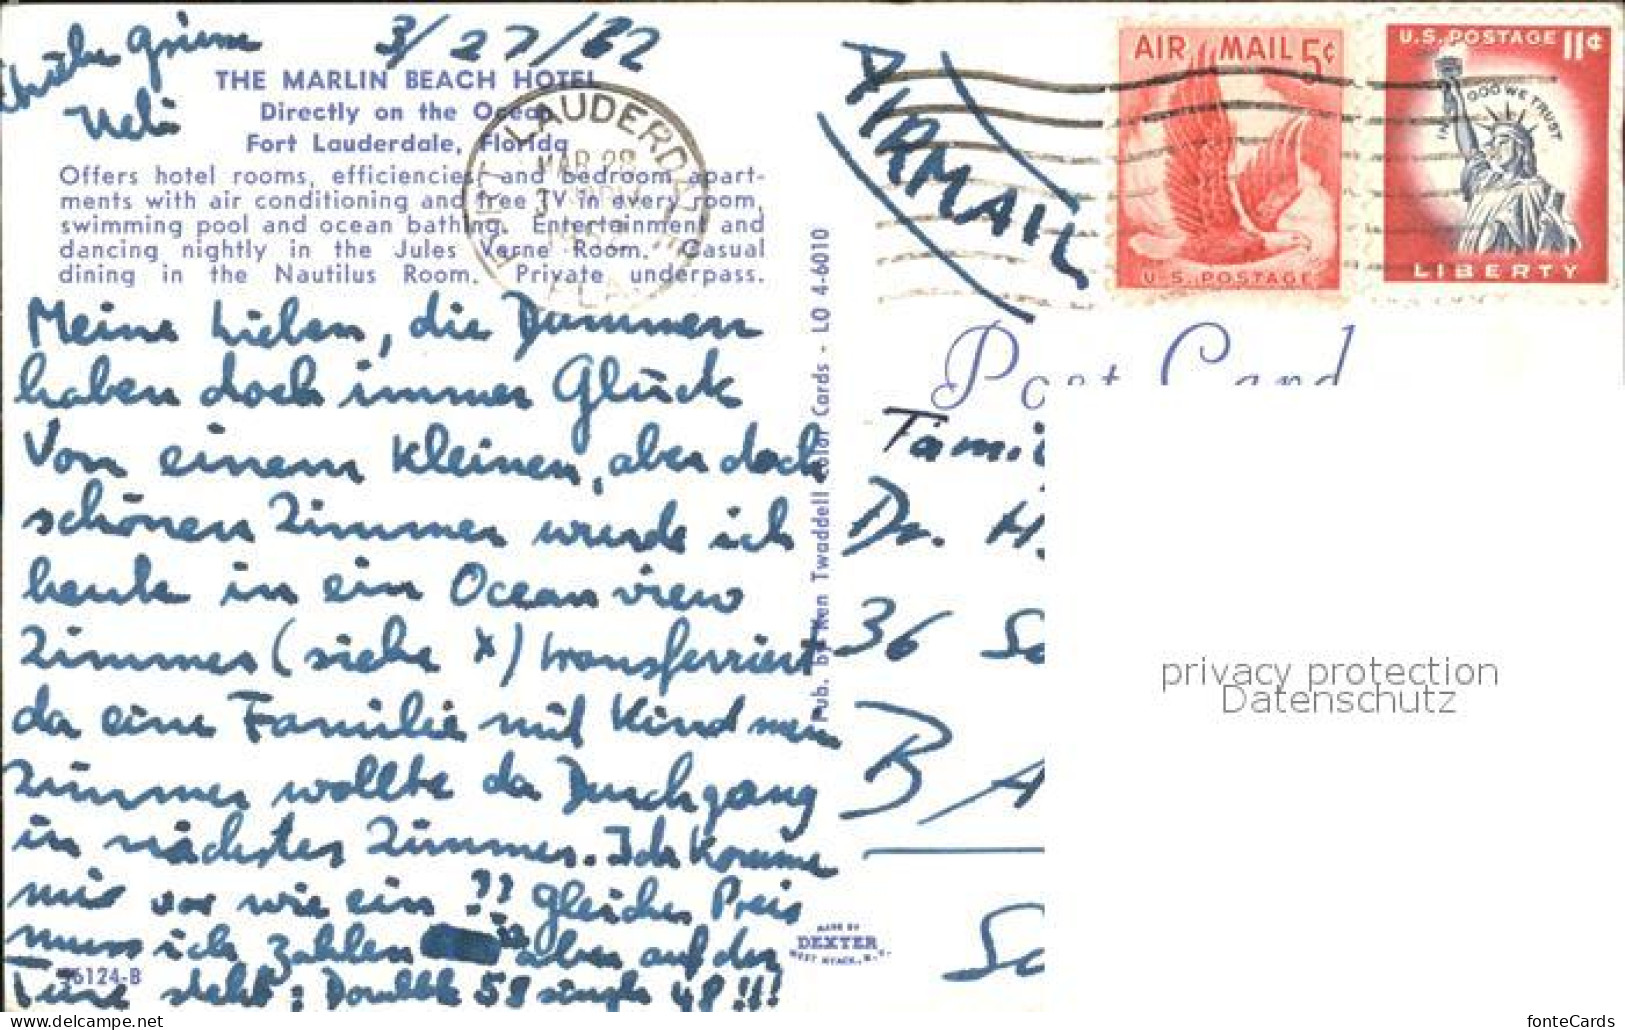 3/27/62
Ueli
THE MARLIN BEACH HOTEL
Directly on the Ocean
Fort Lauderdale, Florida
Offers hotel rooms, efficiencies and bedroom apart-
ments with air conditioning and free TV in every room,
swimming pool and ocean bathing. Entertainment and
dancing nightly in the Jules Verne Room. Casual
dining in the Nautilus Room. Private underpass.
Meine Lieben, die Dummen
haben doch immer Glück
Von einem kleinen, aber doch
schönen Zimmer wurde ich
heute in ein Ocean view
Zimmer (siehe X) transferriert
da eine Familie mit Kind mein
Zimmer wollte da Durchgang
in nächstes Zimmer. Ich komme
mir vor wie ein ?? Gleicher Preis
muss ich zahlen aber auf der
Türe steht: Double 58 single 48!!!
36124-B
Pub. by Ken Twaddell Color Cards - LO 4-6010
MADE BY
DEXTER
WEST NYACK, N.Y.
FORT LAUDERDALE
MAR 28
FLA
AIRMAIL
AIR MAIL 5¢
U.S. POSTAGE
U.S. POSTAGE 11¢
IN GOD WE TRUST
LIBERTY
Post Card
Fami
Dr. H.
36 Sc
B A
Sc
privacy protection
Datenschutz
https://www.delcampe.net/en_US/collectibles/store/fonteCards
fonteCards